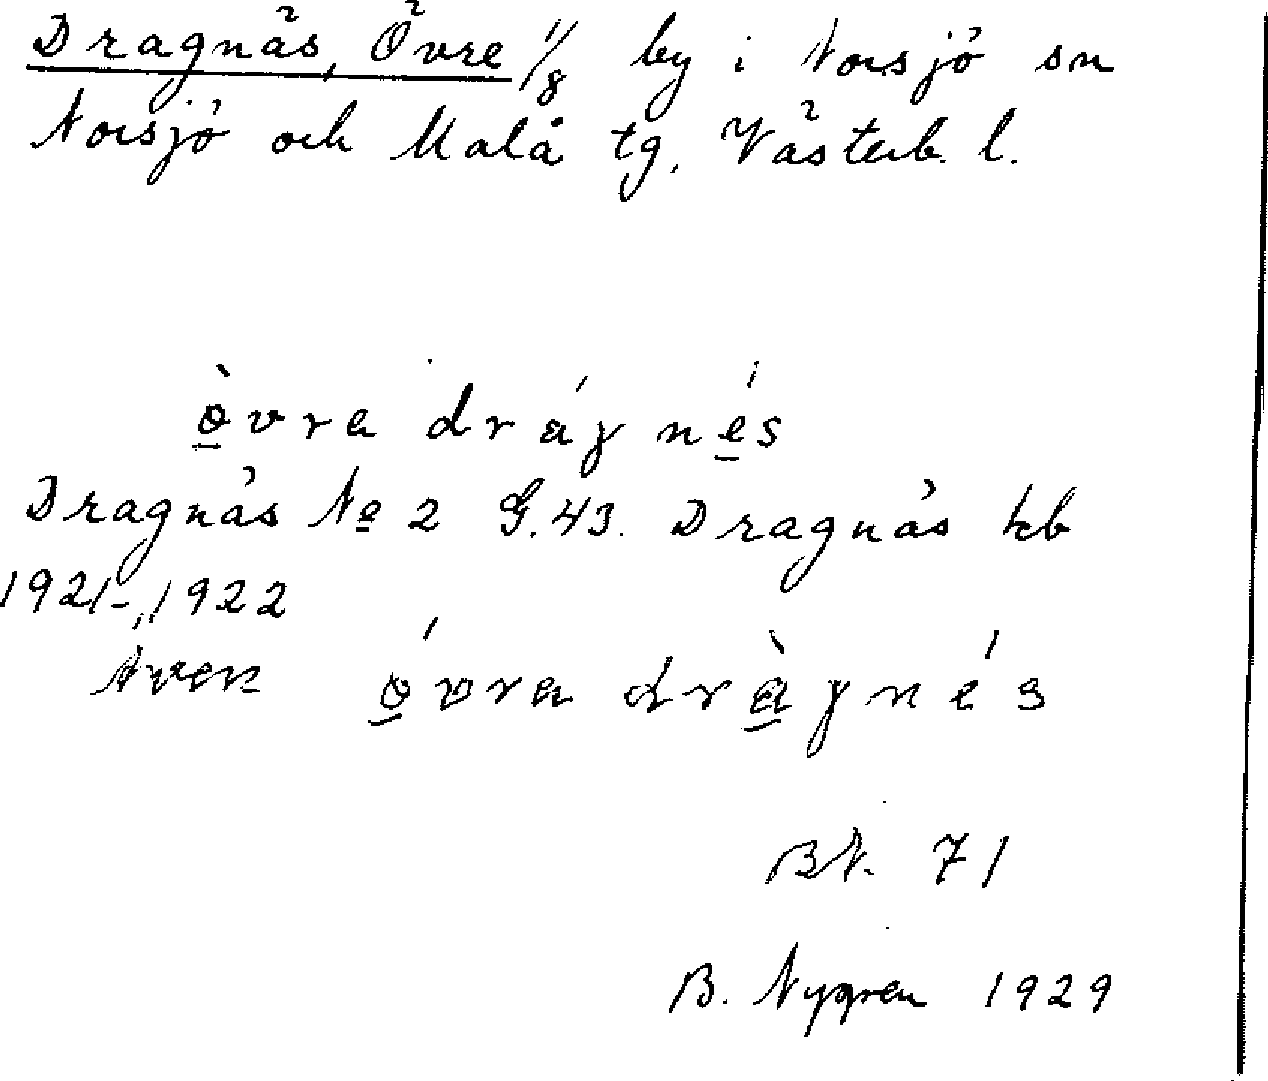 Dragnäs, Övre 1/8 by i Norsjö sn
Norsjö och Malå tg. Västerb. l.
ö̀vra dráγnés
Dragnäs No 2 G.43. Dragnäs kb
1921-1922
Även ö́vra dràγnés
BN. 71
B. Nygren 1929